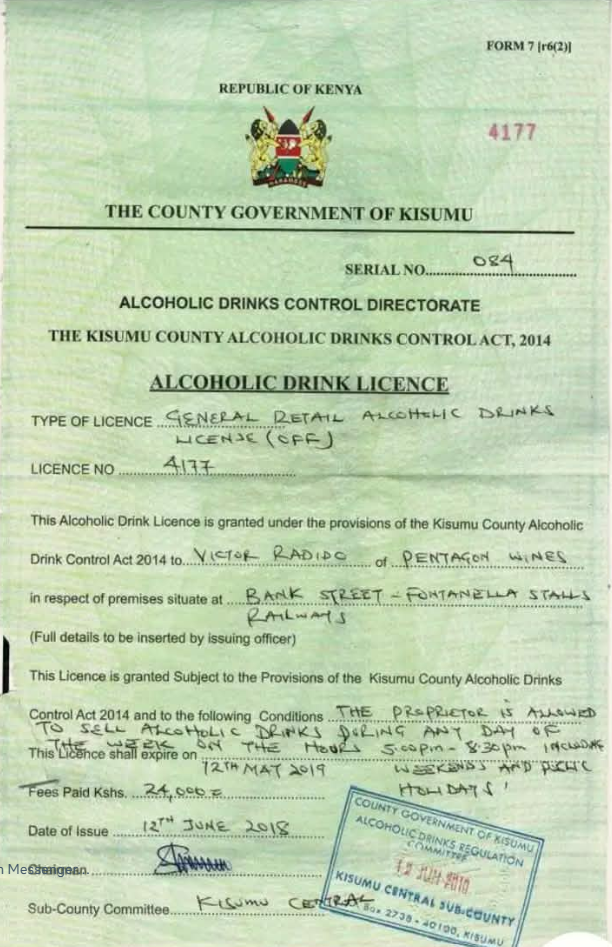 FORM 7 [r6(2)]
REPUBLIC OF KENYA
4177
HARAMBEE
THE COUNTY GOVERNMENT OF KISUMU
SERIAL NO. 084
ALCOHOLIC DRINKS CONTROL DIRECTORATE
THE KISUMU COUNTY ALCOHOLIC DRINKS CONTROL ACT, 2014
ALCOHOLIC DRINK LICENCE
TYPE OF LICENCE GENERAL RETAIL ALCOHOLIC DRINKS
LICENSE (OFF)
LICENCE NO 4177
This Alcoholic Drink Licence is granted under the provisions of the Kisumu County Alcoholic
Drink Control Act 2014 to VICTOR RADIDO of PENTAGON WINES
in respect of premises situate at BANK STREET - FONTANELLA STALLS
RAILWAYS
(Full details to be inserted by issuing officer)
This Licence is granted Subject to the Provisions of the Kisumu County Alcoholic Drinks
Control Act 2014 and to the following Conditions THE PROPRIETOR IS ALLOWED
TO SELL ALCOHOLIC DRINKS DURING ANY DAY OF
THE WEEK ON THE HOURS 5:00pm - 8:30pm
This Licence shall expire on
12TH MAY 2019 WEEKENDS AND PUBLIC
Fees Paid Kshs. 24,000 = HOLIDAYS
Date of Issue 12TH JUNE 2018
Chairman
Messenger
Sub-County Committee KISUMU CENTRAL
COUNTY GOVERNMENT OF KISUMU
ALCOHOLIC DRINKS REGULATION
COMMITTEE
KISUMU CENTRAL SUB-COUNTY
Box 2738 - 40100, KISUMU